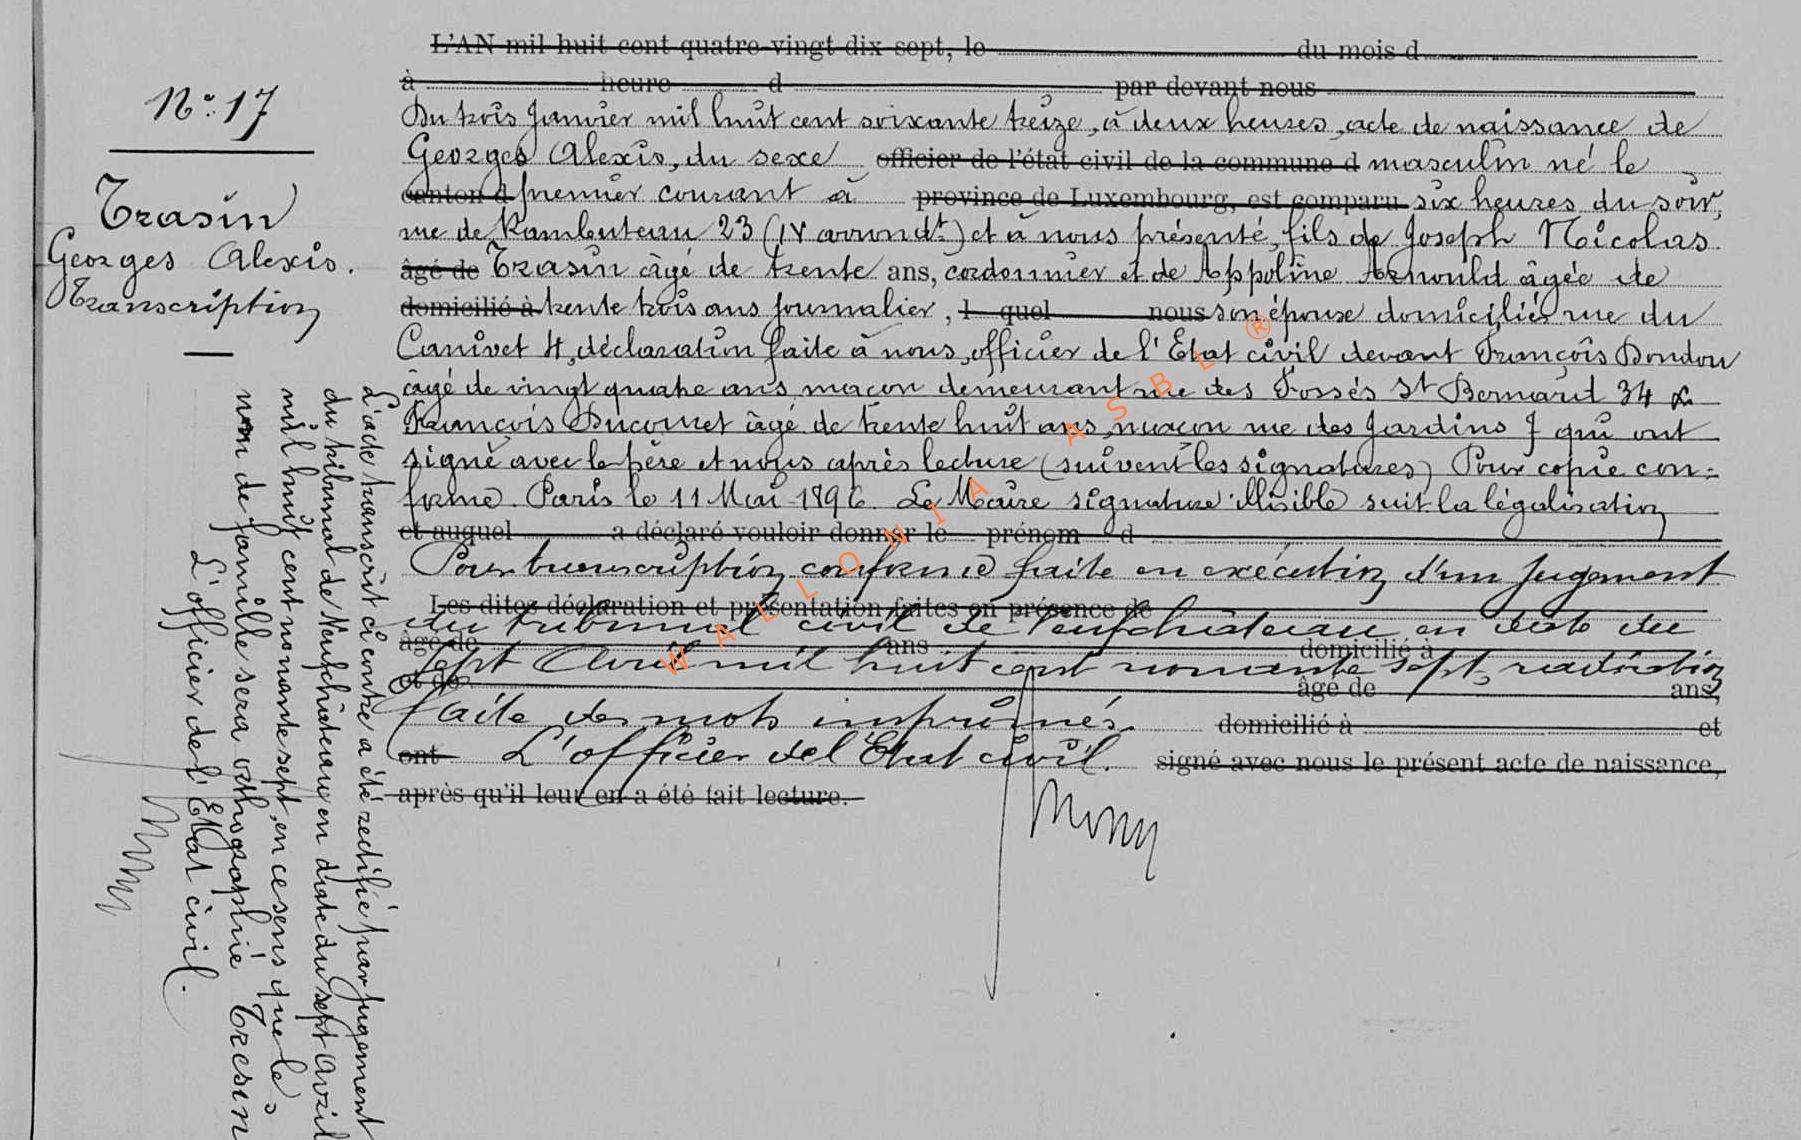 L'AN mil huit cent quatre-vingt-dix sept, le du mois d
à heure d par devant nous
Du trois Janvier mil huit cent soixante treize, à deux heures, acte de naissance de
Georges Alexis, du sexe officier de l'état civil de la commune d masculin né le
canton d premier courant à province de Luxembourg, est comparu six heures du soir,
rue de Rambuteau 23 (IV arrondt.) et à nous présenté, fils de Joseph Nicolas
âgé de Trasin âgé de trente ans, cordonnier et de Appoline Arnould âgée de
domicilié à trente trois ans journalier, l quel nous son épouse domiciliés rue du
Canivet 4, déclaration faite à nous, officier de l'Etat civil devant François Dondon
âgé de vingt quatre ans, maçon demeurant rue des Fossés St Bernard 34 &
François Ducouret âgé de trente huit ans, maçon rue des Jardins J qui ont
signé avec le père et nous après lecture (suivent les signatures) Pour copie con=
forme. Paris le 11 Mai 1896. Le Maire signature illisible suit la légalisation
et auquel a déclaré vouloir donner le prénom d
Pour transcription conforme faite en exécution d'un jugement
Les dites déclaration et présentation faites en présence de
du tribunal civil de Neufchâteau en date du
âgé de ans domicilié à
sept Avril mil huit cent nonante sept, radiation
et de âgé de ans,
faite des mots imprimés.
domicilié à et
ont L'officier de l'Etat civil. signé avec nous le présent acte de naissance,
après qu'il leur en a été fait lecture.
No. 17
Trasin
Georges Alexis.
Transcription
L'acte transcrit ci contre a été rectifié par jugement
du tribunal de Neufchâteau en date du sept Avril
mil huit cent nonante sept, en ce sens que le
nom de famille sera orthographié Tresin
L'officier de l'Etat civil.
WALLONIA ASBL ®